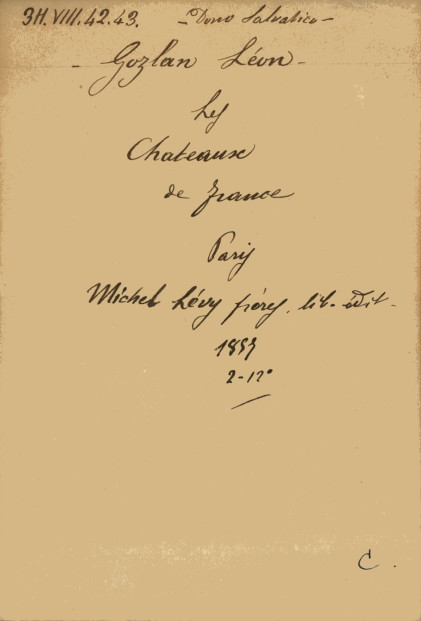 3H.VIII.42.43. - Dono Salvatico -
- Gozlan Léon -
Les
Chateaux
de France
Paris
Michel Lévy frères. lib-édit-
2-12°
C.